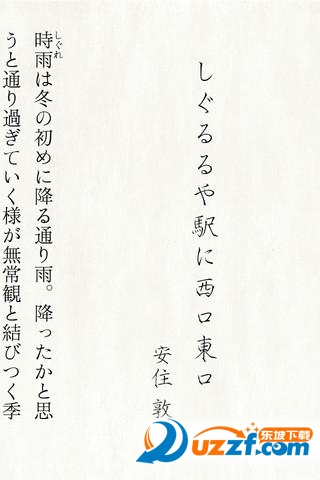 しぐるるや駅に西口東口
安住 敦
しぐれ
時雨は冬の初めに降る通り雨。降ったかと思
うと通り過ぎていく様が無常観と結びつく季
东坡下载
uzzf.com